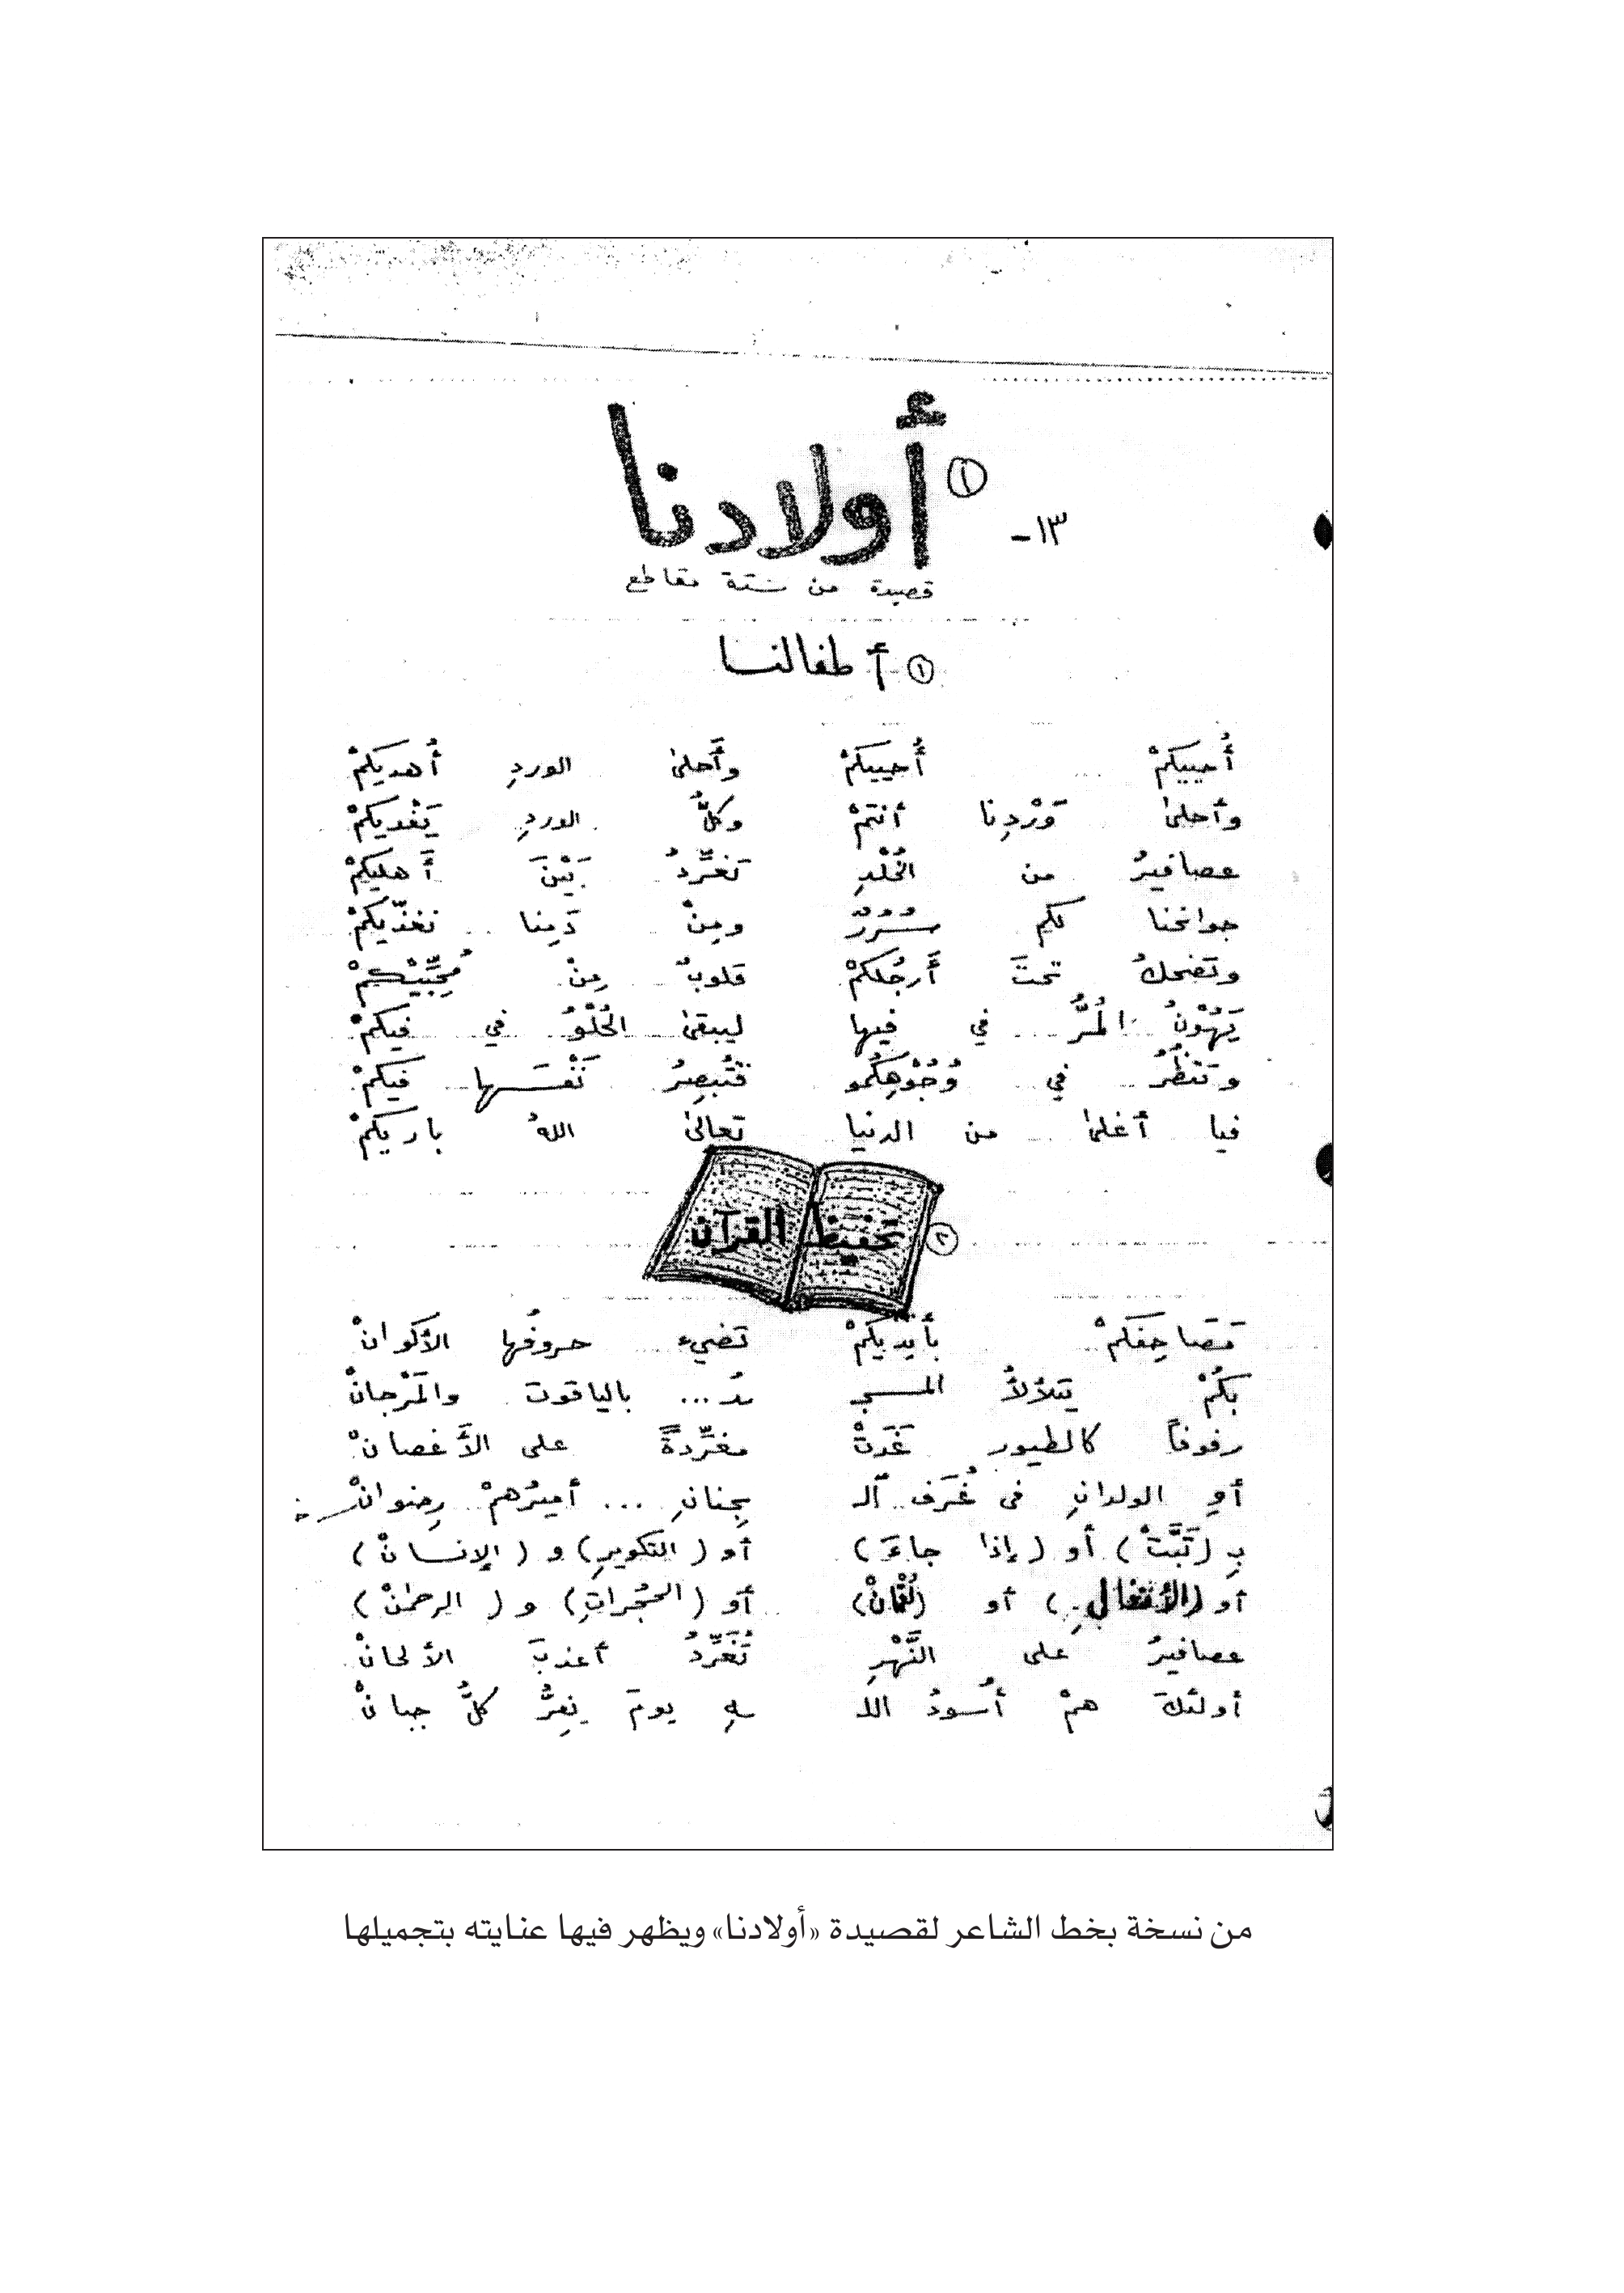 ١٣- ① أولادنا
قصيدة من ستة مقاطع
① أطفالنا
أُحييكمْ أُحييكمْ وأَحلىٰ الوردِ أُهديكمْ
وأحلىٰ وَرْدِنا أنتمْ وكلُّ الوردِ يَفْديكمْ
عصافيرُ من الخُلْدِ تَغرِّدُ بَيْنَ أَهليكمْ
جوانحنا لكم سُرُرٌ ومِنْ دَمِنا نغذّيكمْ
وتضحكُ تحتَ أَرجُلكمْ قلوبٌ مِنْ مُحِبِّيْكمْ
يَهُوْنُ المُرُّ في فيها ليبقىٰ الحُلْوُ في فيكمْ
وتَنْظُرُ في وُجُوْهِكُمو فتُبصِرُ نَفْسَها فيكمْ
فيا أغلىٰ من الدنيا تعالىٰ اللهُ باريكمْ
② تحفيظ القرآن
مَصَاحِفكمْ بأيْديكمْ تضيء حروفُها الأكوانْ
بكُمْ يتلألأُ المسجـ ـدُ... بالياقوت والمَرْجانْ
رفوفاً كالطيور غَدَتْ مغرِّدةً على الأَغصانْ
أوِ الولدانِ فى غُرَف الـ ـجِنانِ ... أميرُهمْ رِضوانْ
بِـ (تَبَّتْ) أو (إذا جاءَ) أو (التكويرِ) و (الإنسانْ)
أو (الأنفالِ) أو (لُقمانْ) أو (الحُجُراتِ) و (الرحمٰنْ)
عصافيرُ على النَّهْرِ تُغَرِّدُ أعذبَ الألحانْ
أولئكَ همْ أُسودُ اللـ ـهِ يومَ يَفِرُّ كلُّ جبانْ
من نسخة بخط الشاعر لقصيدة «أولادنا» ويظهر فيها عنايته بتجميلها